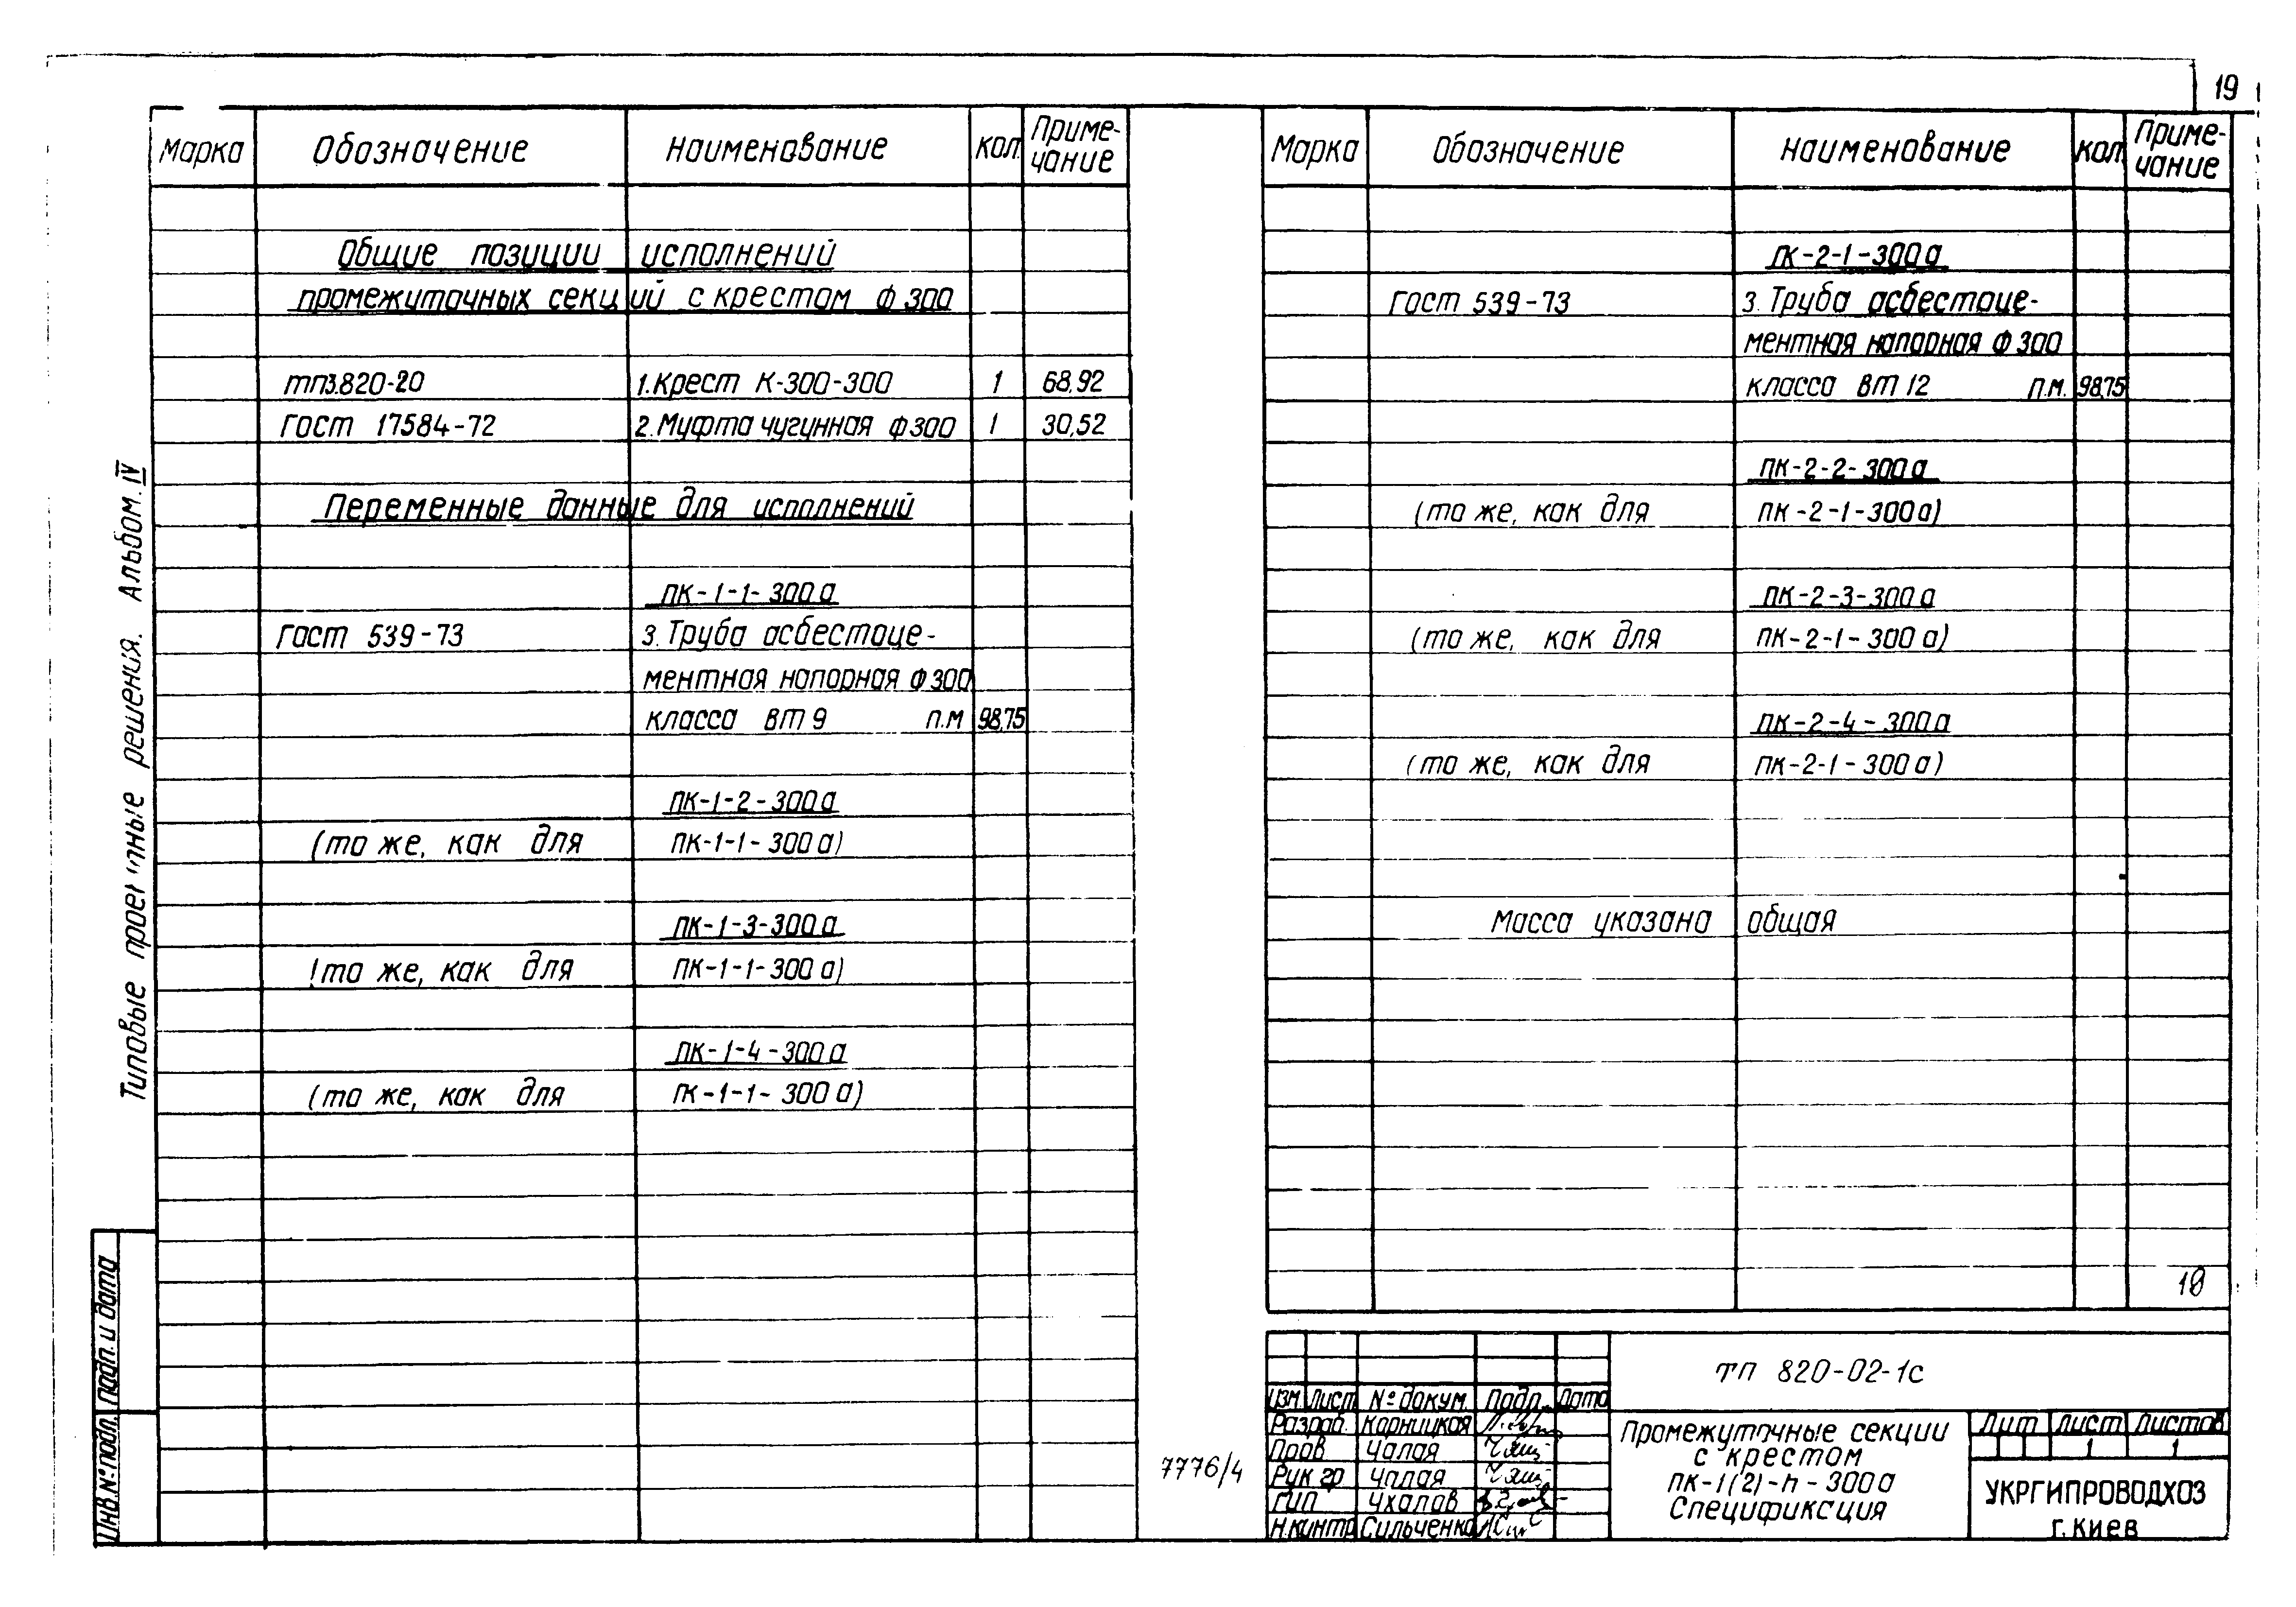 19
Марка Обозначение Наименование Кол. Приме-
чание
Общие позиции исполнений
промежуточных секций с крестом Ф 300
ТП3.820-20 1. Крест К-300-300 1 68,92
ГОСТ 17584-72 2. Муфта чугунная Ф300 1 30,52
Переменные данные для исполнений
ПК-1-1-300а
ГОСТ 539-73 3. Труба асбестоце-
ментная напорная Ф300
класса ВТ9 п.м 98,75
ПК-1-2-300а
(то же, как для ПК-1-1-300а)
ПК-1-3-300а
(то же, как для ПК-1-1-300а)
ПК-1-4-300а
(то же, как для ПК-1-1-300а)
Марка Обозначение Наименование Кол. Приме-
чание
ПК-2-1-300а
ГОСТ 539-73 3. Труба асбестоце-
ментная напорная Ф300
класса ВТ12 п.м. 98,75
ПК-2-2-300а
(то же, как для ПК-2-1-300а)
ПК-2-3-300а
(то же, как для ПК-2-1-300а)
ПК-2-4-300а
(то же, как для ПК-2-1-300а)
Масса указана общая
Типовые проектные решения. Альбом IV
Инв.№ подл. Подп. и дата
7776/4
ТП 820-02-1с
Изм. Лист № докум. Подп. Дата
Разраб. Корницкая
Пров Чалая
Рук гр Чалая
ГИП Чкалов
Н.контр Сильченко
Промежуточные секции
с крестом
ПК-1(2)-п-300а
Спецификация
Лит Лист Листов
1 1
УКРГИПРОВОДХОЗ
г. Киев